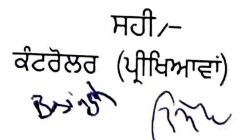 ਸਹੀ/–
ਕੰਟਰੋਲਰ (ਪ੍ਰੀਖਿਆਵਾਂ)